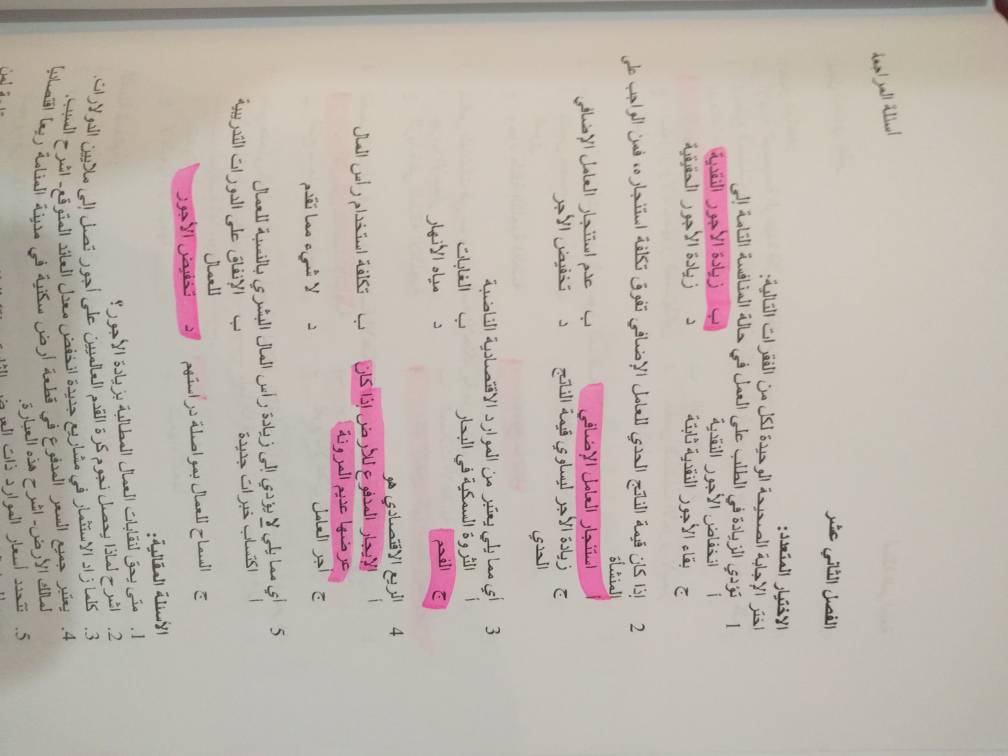 أسئلة المراجعة
الفصل الثاني عشر
الاختيار المتعدد:
اختر الإجابة الصحيحة الوحيدة لكل من الفقرات التالية:
1 تؤدي الزيادة في الطلب على العمل في حالة المنافسة التامة إلى
أ انخفاض الأجور النقدية ب زيادة الأجور النقدية
ج بقاء الأجور النقدية ثابتة د زيادة الأجور الحقيقية
2 إذا كان قيمة الناتج الحدي للعامل الإضافي تفوق تكلفة استئجاره، فمن الواجب على
المنشأة
أ استئجار العامل الإضافي ب عدم استئجار العامل الإضافي
ج زيادة الأجر ليساوي قيمة الناتج د تخفيض الأجر
الحدي
3 أي مما يلي يعتبر من الموارد الاقتصادية الناضبة
أ الثروة السمكية في البحار ب الغابات
ج الفحم د مياه الأنهار
4 الريع الاقتصادي هو
أ الإيجار المدفوع للأرض إذا كان ب تكلفة استخدام رأس المال
عرضها عديم المرونة
ج أجر العامل د لا شيء مما تقدم
5 أي مما يلي لا يؤدي إلى زيادة رأس المال البشري بالنسبة للعمال
أ اكتساب خبرات جديدة ب الإنفاق على الدورات التدريبية
للعمال
ج السماح للعمال بمواصلة دراستهم د تخفيض الأجور
الأسئلة المقالية:
1. متى يحق لنقابات العمال المطالبة بزيادة الأجور؟
2. اشرح لماذا يحصل نجوم كرة القدم العالميين على أجور تصل إلى ملايين الدولارات.
3. كلما زاد الاستثمار في مشاريع جديدة انخفض معدل العائد المتوقع- اشرح السبب.
4. يعتبر جميع السعر المدفوع في قطعة أرض سكنية في مدينة المنامة ريعا اقتصاديا
لمالك الأرض- اشرح هذه العبارة.
5. تتحدد أسعار الموارد ذات العرض